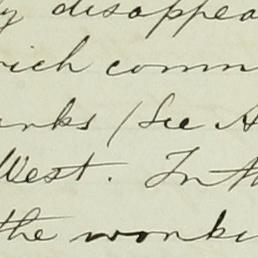 y disappea
rich comm
anks (See A
West. In th
the workin